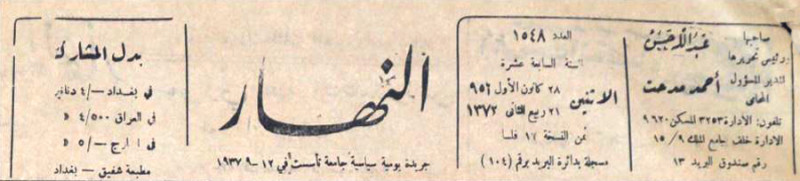 صاحبها
عبدالله حسن
ورئيس تحريرها
المدير المسؤول
أحمد مدحت
المحامي
تلفون: الادارة ٣٢٥٣ المسكن ٩٦٢٠
الادارة خلف جامع الملك ٩/ ١٥
رقم صندوق البريد ١٣
العدد ١٥٤٨
السنة السابعة عشرة
٢٨ كانون الأول ٩٥٢
الاثنين
٢١ ربيع الثاني ١٣٧٢
ثمن النسخة ١٧ فلسا
مسجلة بدائرة البريد برقم (١٠٤)
النهار
جريدة يومية سياسية جامعة تأسست في ١٢-٩-١٩٣٧
بدل المشاركة
في بغداد —/٤ دنانير
في العراق ٤/٥٠٠ »
في الخارج —/٥ »
مطبعة شفيق - بغداد